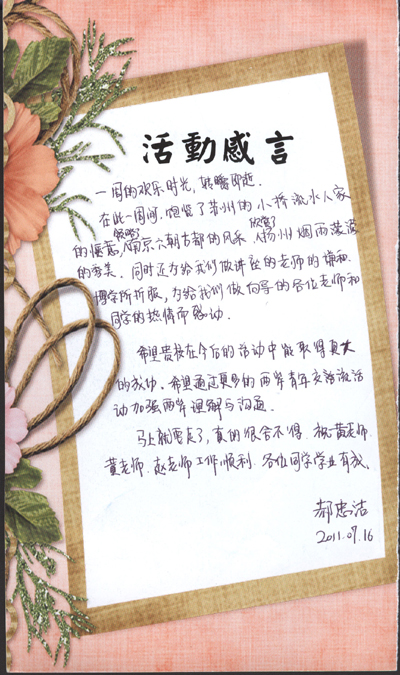 活動感言
一周的欢乐时光,转瞬即逝.
在此一周间.饱览了苏州的小桥流水人家
的惬意,领略了南京六朝古都的风采,欣赏了扬州烟雨迷濛
的秀美.同时还为给我们做讲座的老师的谦和.
博学所折服,为给我们做向导的各位老师和
同学的热情而感动.
希望贵校在今后的活动中能取得更大
的成功.希望通过更多的两岸青年交流活
动加强两岸理解与沟通.
马上就要走了,真的很舍不得.祝黄老师
董老师.赵老师工作顺利.各位同学学业有成.
郝忠洁
2011.07.16